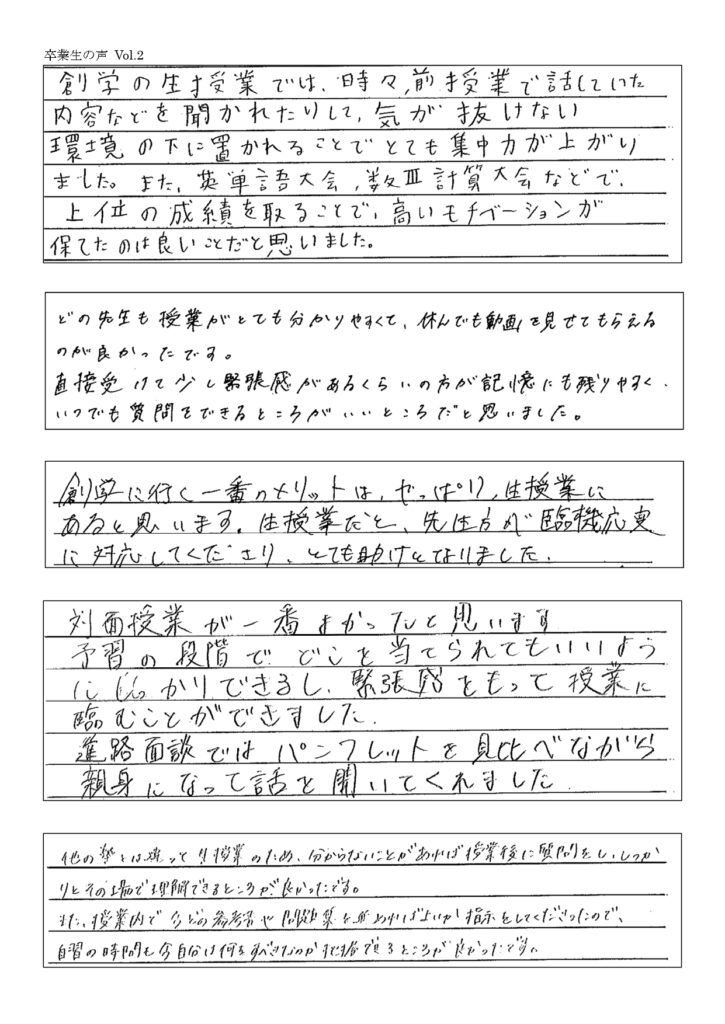 卒業生の声 Vol.2
創学の生授業では、時々、前授業で話していた
内容などを聞かれたりして、気が抜けない
環境の下に置かれることでとても集中力が上がり
ました。また、英単語大会、数Ⅲ計算大会などで、
上位の成績を取ることで、高いモチベーションが
保てたのは良いことだと思いました。
どの先生も授業がとても分かりやすくて、休んでも動画を見せてもらえる
のが良かったです。
直接受けて少し緊張感があるくらいの方が記憶にも残りやすく、
いつでも質問をできるところがいいところだと思いました。
創学に行く一番のメリットは、やっぱり、生授業に
あると思います。生授業だと、先生方が臨機応変
に対応してくださり、とても助けとなりました。
対面授業が一番よかったと思います
予習の段階でどこを当てられてもいいよう
にしっかりできるし、緊張感をもって授業に
臨むことができました。
進路面談ではパンフレットを見比べながら
親身になって話を聞いてくれました
他の塾とは違って生授業のため、分からないことがあれば授業後に質問をし、しっか
りとその場で理解できるところが良かったです。
また、授業内で今どの参考書や問題集を進めればよいか指示をしてくださったので、
自習の時間も今自分は何をすべきなのか把握できるところが良かったです。